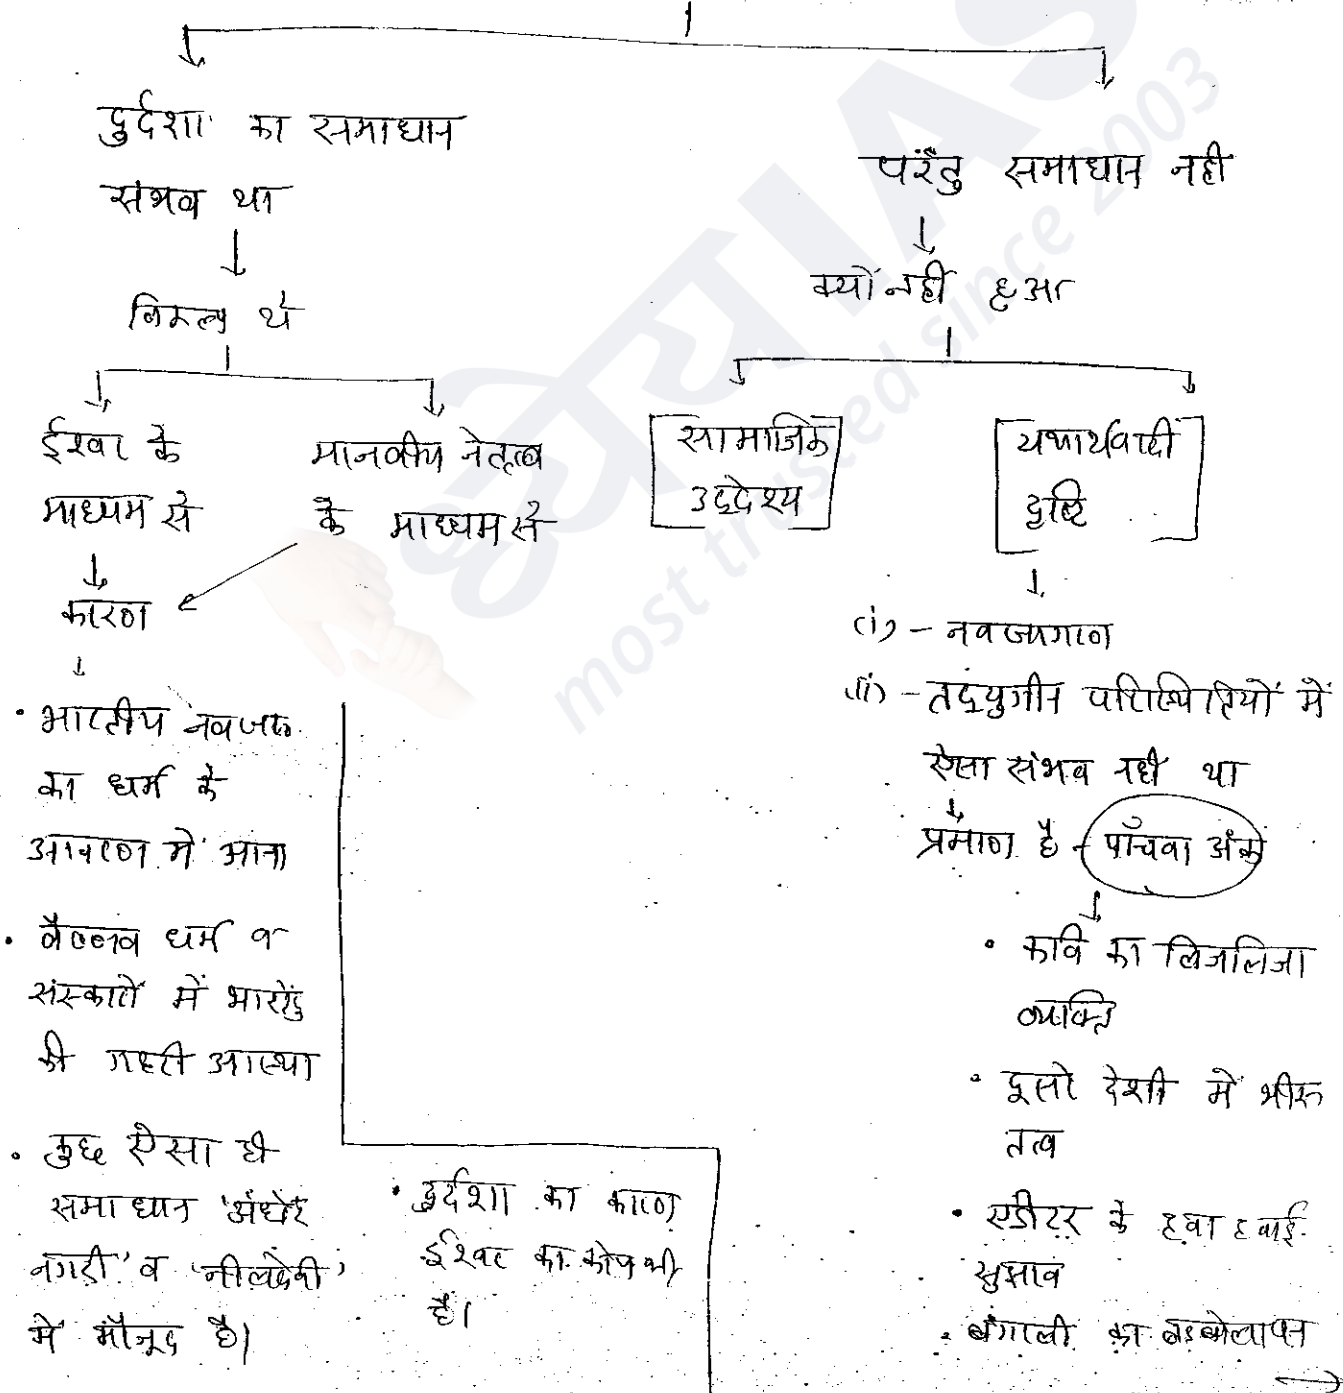 दुर्दशा का समाधान
संभव था
विकल्प थे
ईश्वर के
माध्यम से
मानवीय नेतृत्व
के माध्यम से
कारण
• भारतीय नवजा.
का धर्म के
आवरण में आना
• वैष्णव धर्म व
संस्कारों में भारतेंदु
की गहरी आस्था
• कुछ ऐसा ही
समाधान 'अंधेर
नगरी' व 'नीलदेवी'
में मौजूद है।
• दुर्दशा का कारण
ईश्वर का कोप भी
है।
परंतु समाधान नहीं
क्यों नहीं हुआ
सामाजिक
उद्देश्य
यथार्थवादी
दृष्टि
(i) - नवजागरण
(ii) - तद्युगीन परिस्थितियों में
ऐसा संभव नहीं था
प्रमाण है - पाँचवा अंक
• कवि का लिजलिजा
व्यक्ति
• दूसरे देशी में भीरू
तत्व
• एडीटर के हवा हवाई
सुझाव
• बंगाली का बड़बोलापन
ध्येय IAS
most trusted since 2003